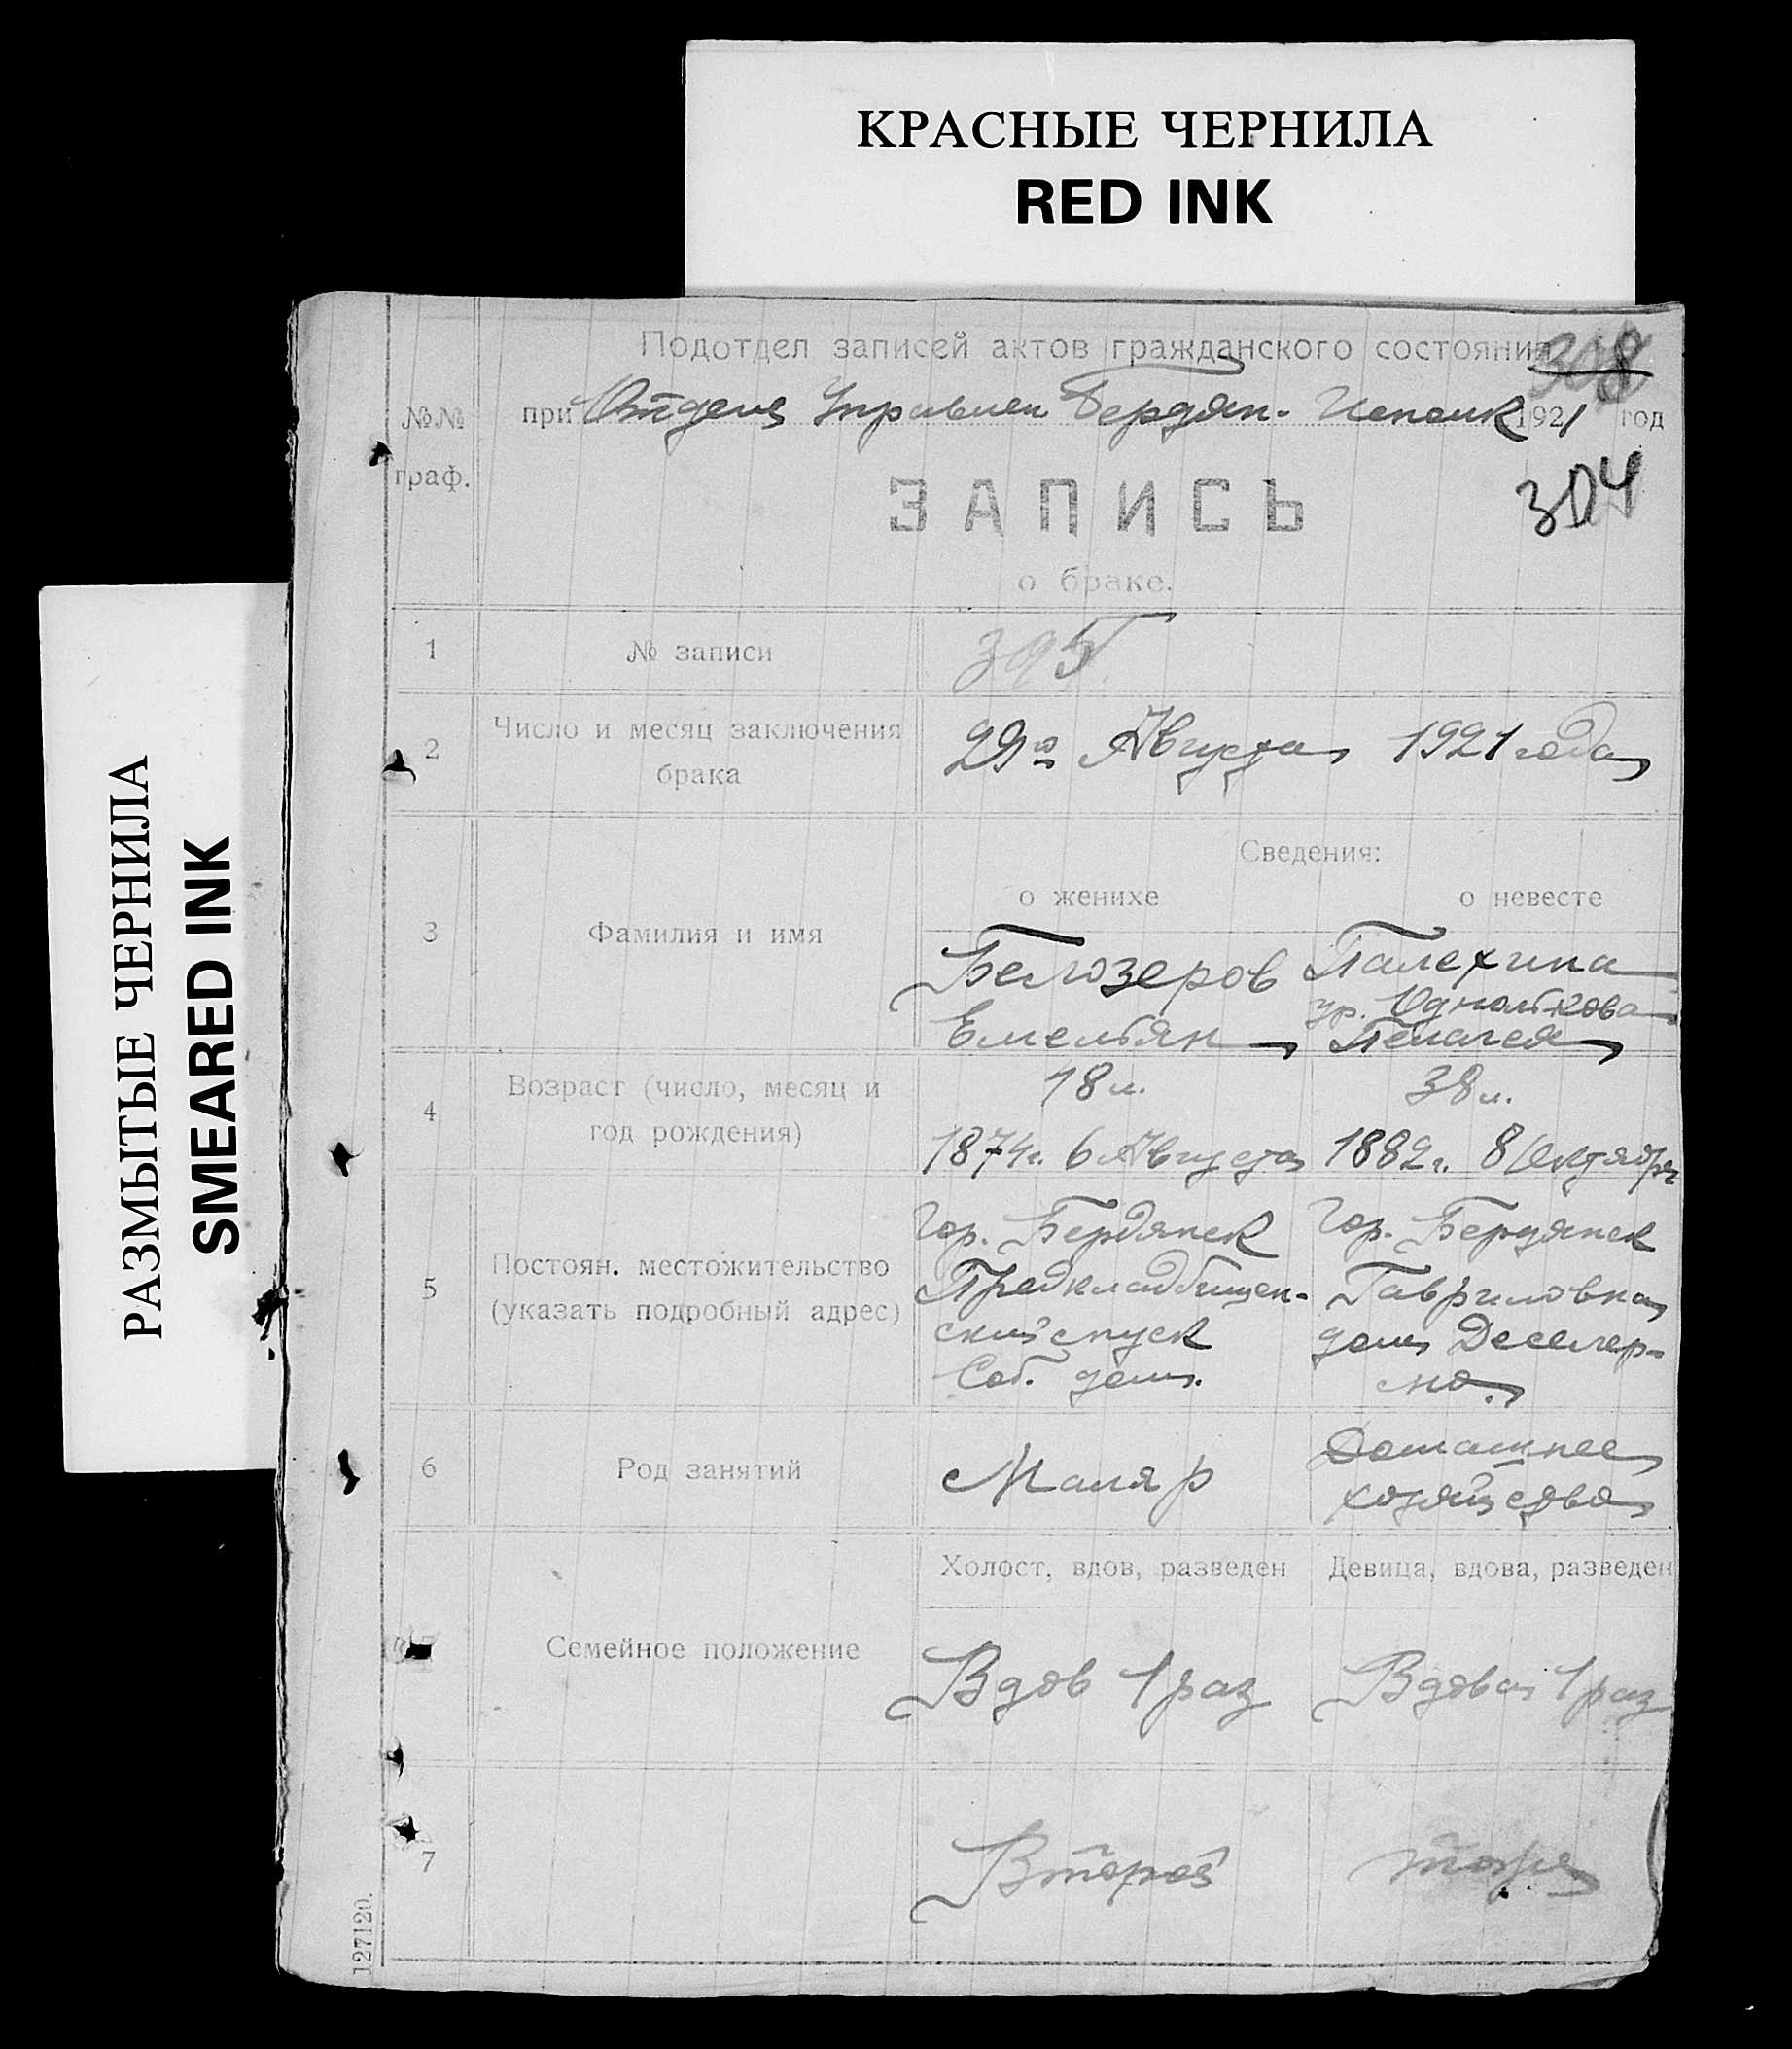 КРАСНЫЕ ЧЕРНИЛА
RED INK
РАЗМЫТЫЕ ЧЕРНИЛА
SMEARED INK
Подотдел записей актов гражданского состояния
308
№№ граф.
при Отделе Управлен Бердян. Исполк 1921 год
304
ЗАПИСЬ
о браке.
1 № записи 395
2 Число и месяц заключения брака 29го Августа 1921 года
Сведения:
о женихе о невесте
3 Фамилия и имя
Белозеров Емельян
Палехина
ур.
Пелагея
4 Возраст (число, месяц и год рождения)
18 л. 38 л.
1874 г. 6 Августа 1882 г. 8 Октября
5 Постоян. местожительство (указать подробный адрес)
Гор. Бердянск
Предкладбищен-
ский спуск
Соб. дом.
Гор. Бердянск
Гавриловная
дом
6 Род занятий
Маляр
Домашнее
хозяйство
Холост, вдов, разведен Девица, вдова, разведен
7 Семейное положение
Вдов 1 раз Вдова 1 раз
7 Второй тоже
127120.